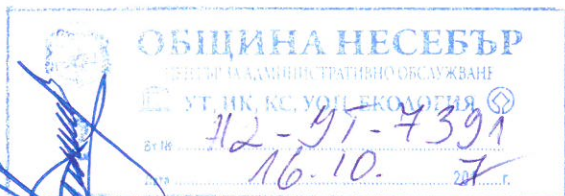 ОБЩИНА НЕСЕБЪР
ЦЕНТЪР ЗА АДМИНИСТРАТИВНО ОБСЛУЖВАНЕ
УТ, ИК, КС, УОП, ЕКОЛОГИЯ
Вх № Н2-УТ-7391
Дата 16.10. 2017 г.